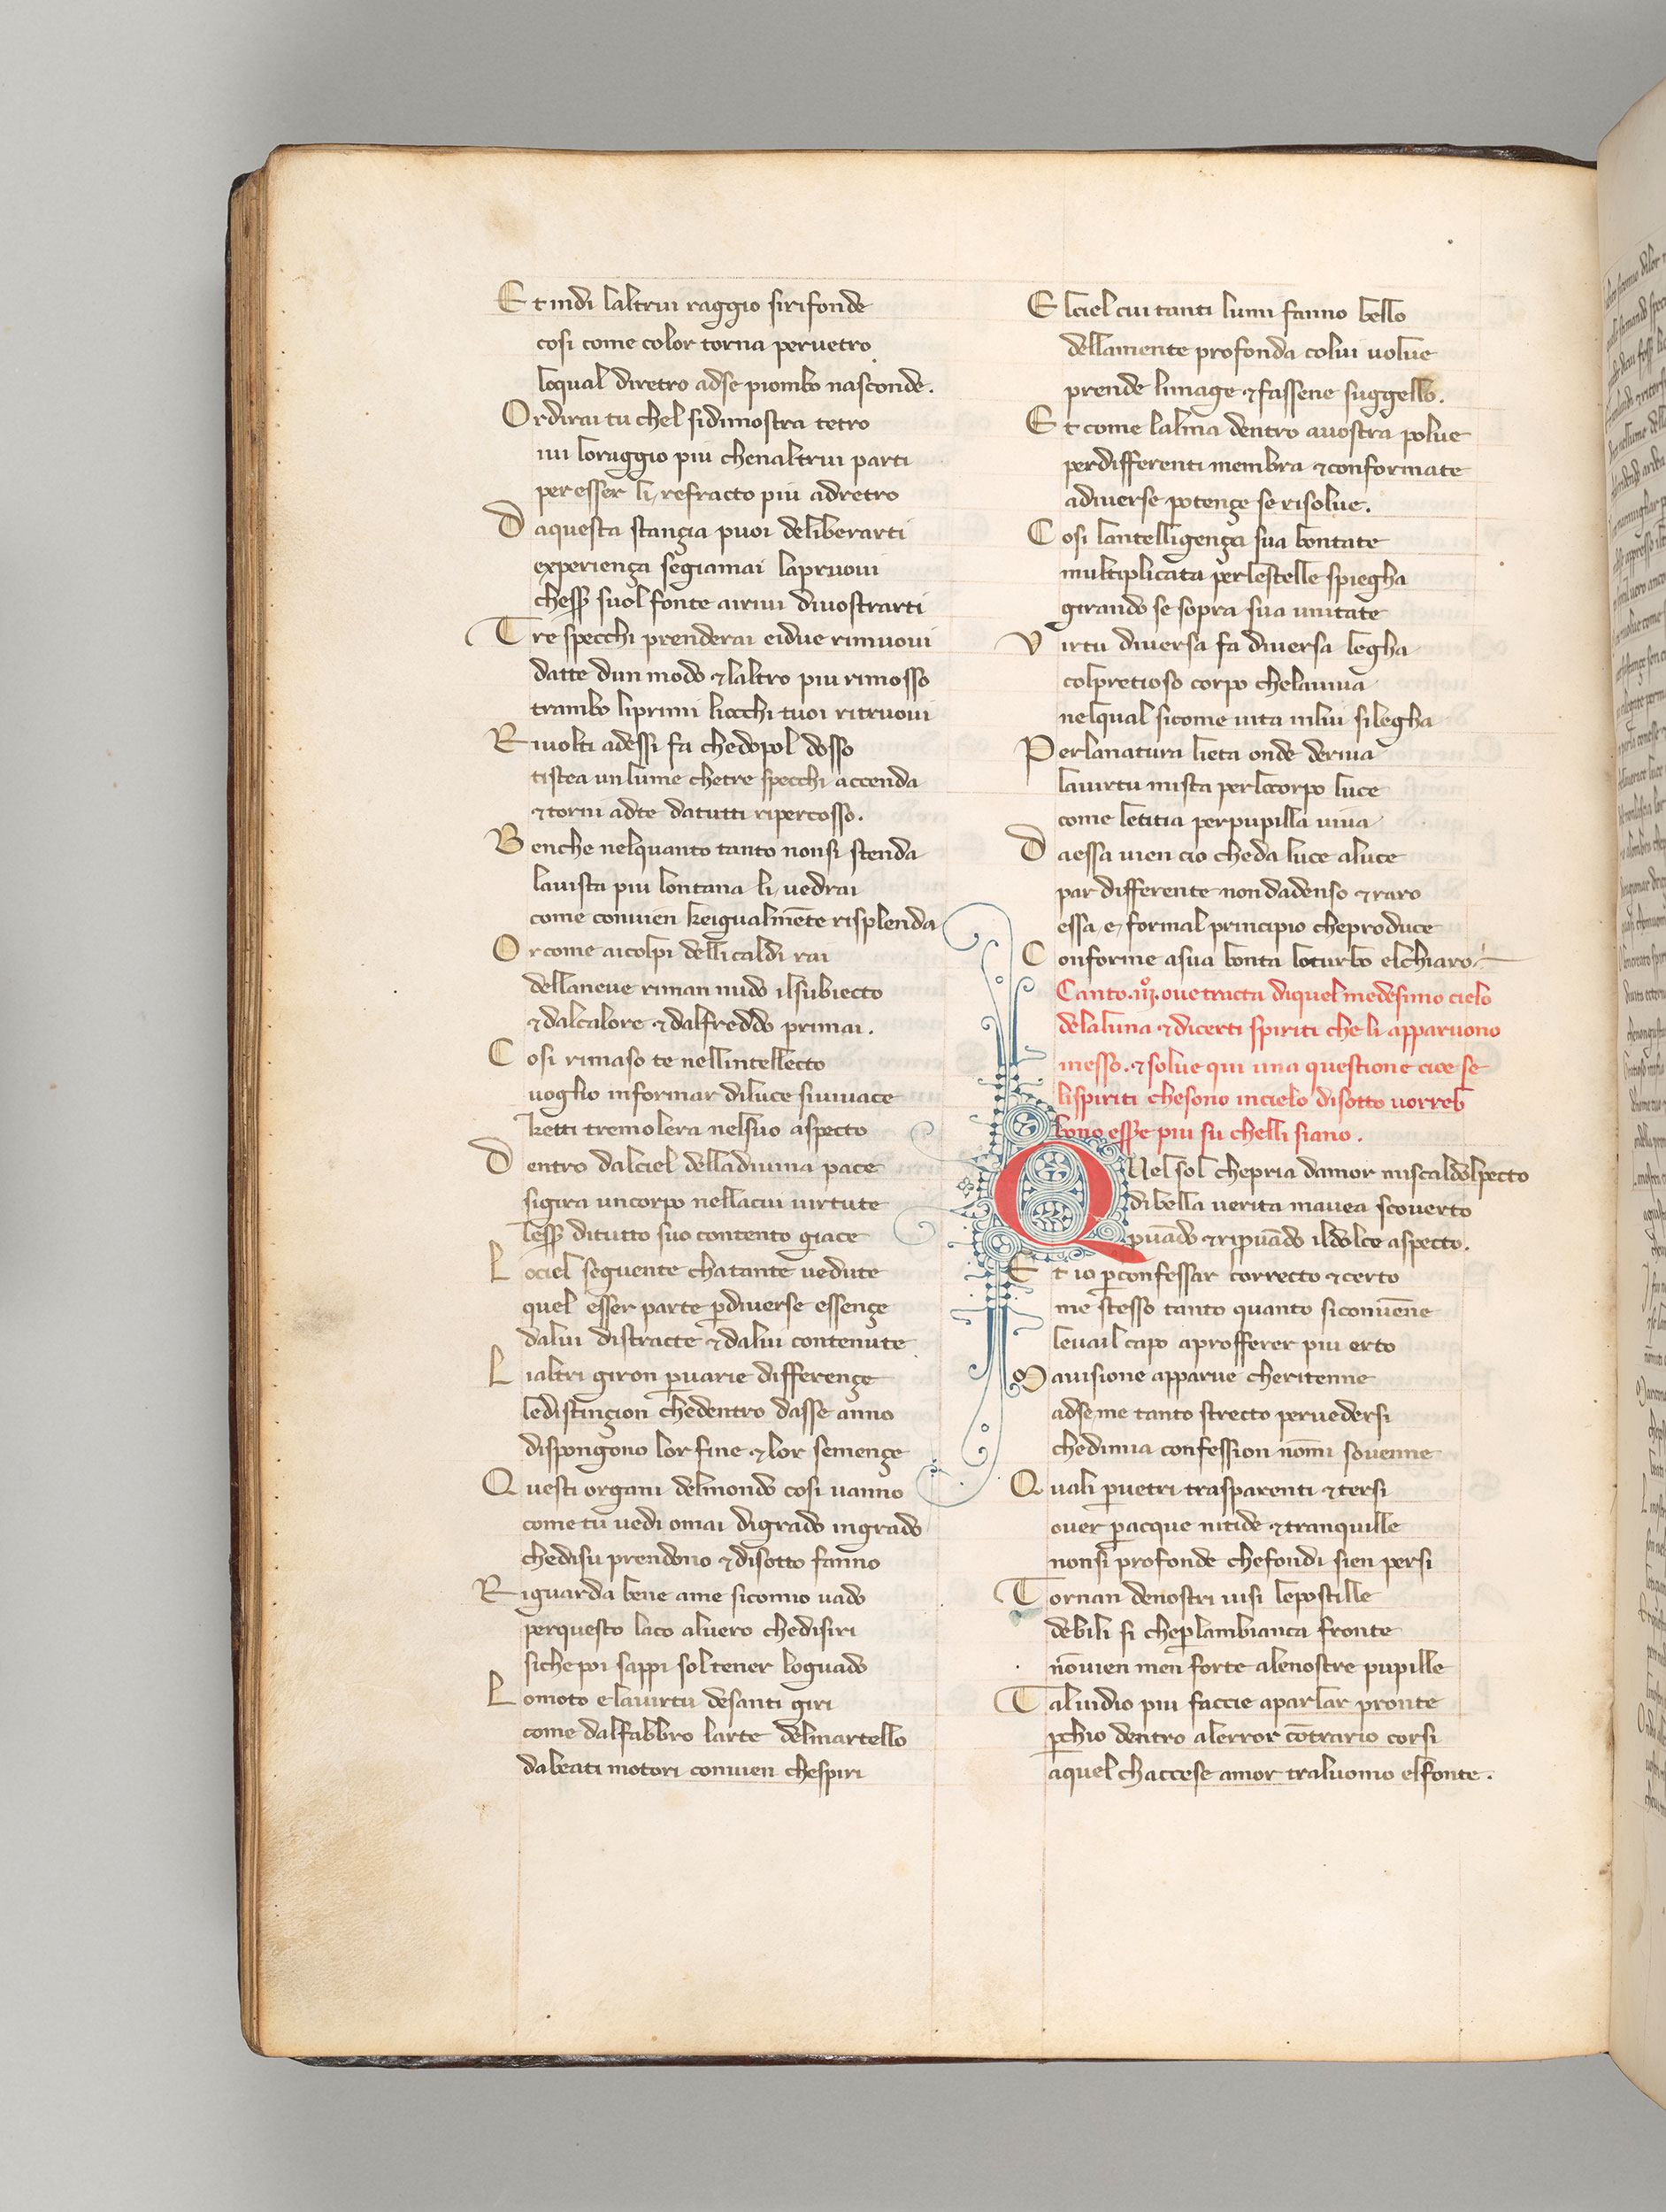 Et indi laltrui raggio sirifonde
cosi come color torna peruetro
loqual diretro adse piombo nasconde.
Ordirai tu chel sidimostra tetro
iui loraggio piu chenaltrui parti
per esser li refracto piu adretro
Daquesta stanzia puoi deliberarti
experienza segiamai lapruoui
chesser suol fonte airiui diuostrarti
Tre specchi prenderai eidue rimuoui
datte dun modo ⁊ laltro piu rimosso
trambo liprimi liocchi tuoi ritruoui
Riuolti adessi fa chedopol dosso
tistea un lume chetre specchi accenda
⁊ torni adte datutti ripercosso.
Benche nelquanto tanto nonsi stenda
lauista piu lontana li uedrai
come conuien keigualmēte risplenda
Or come aicolpi delli caldi rai
dellaneue riman nudo ilsubiecto
⁊ dalcalore ⁊ dalfreddo primai.
Cosi rimaso te nellintellecto
uoglio informar diluce siuiuace
ketti tremolera nelsuo aspecto
Dentro dalciel delladiuina pace
sigira uncorpo nellacui uirtute
lesser ditutto suo contento giace
Lociel seguente chatante uedute
quel esser parte p̄diuerse essenze
dalui distracte ⁊ dalui contenute
Lialtri giron p̄uarie differenze
ledistinzion chedentro dasse anno
dispongono lor fine ⁊ lor semenze
Questi organi delmondo cosi uanno
come tu uedi omai digrado ingrado
chedisu prendono ⁊ disotto fanno
Riguarda bene ame sicomio uado
perquesto laco aluero chedisiri
siche poi sappi sol tener loguado
Lomoto elauirtu desanti giri
come dalfabbro larte delmartello
dabeati motori conuien chespiri
Elciel cui tanti lumi fanno bello
dellamente profonda colui uolue
prende limage ⁊ fassene suggello.
Et come lalma dentro auostra polue
perdifferenti membra ⁊ conformate
adiuerse potenze se risolue.
Cosi lantelligenza sua bontate
multiplicata perlestelle spiegha
girando se sopra sua unitate
Virtu diuersa fa diuersa legha
colpretioso corpo chelauiua
nelqual sicome uita inlui silegha
Perlanatura lieta onde deriua
lauirtu mista perlocorpo luce
come letitia perpupilla uiua
Daessa uien cio cheda luce aluce
par differente non dadenso ⁊ raro
essa e formal principio cheproduce
Conforme asua bonta loturbo elchiaro
Canto .iij. oue tracta diquel medesimo cielo
delaluna ⁊ dicerti spiriti che li apparuono
inesso. ⁊ solue qui una questione cioe se
lispiriti chesono incielo disotto uorreb
bono esser piu su chelli siano.
QVel sol chepria damor miscaldolpecto
dibella uerita mauea scouerto
puādo ⁊ ripuādo ildolce aspecto.
Et io p̄confessar correcto ⁊ certo
me stesso tanto quanto siconuēne
leuail capo aprofferer piu erto
Mauisione apparue cheritenne
adse me tanto strecto peruedersi
chedimia confession nōmi souenne
Quali p̄uetri trasparenti ⁊ tersi
ouer p̄acque nitide ⁊ tranquille
nonsi profonde chefondi sien persi
Tornan denostri uisi lepostille
debili si chep̄lambianca fronte
nōuien men forte alenostre pupille
Taliuidio piu faccie aparlar pronte
p̄chio dentro alerror cōtrario corsi
aquel chaccese amor traluomo elfonte.